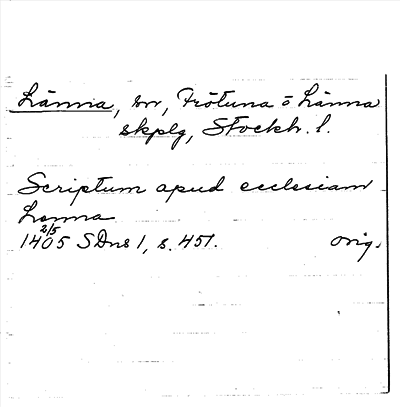 Länna, sn, Frötuna o Länna
skplg, Stockh. l.
Scriptum apud ecclesiam
Lænna
1405 2/5 SDns 1, s. 451. orig.